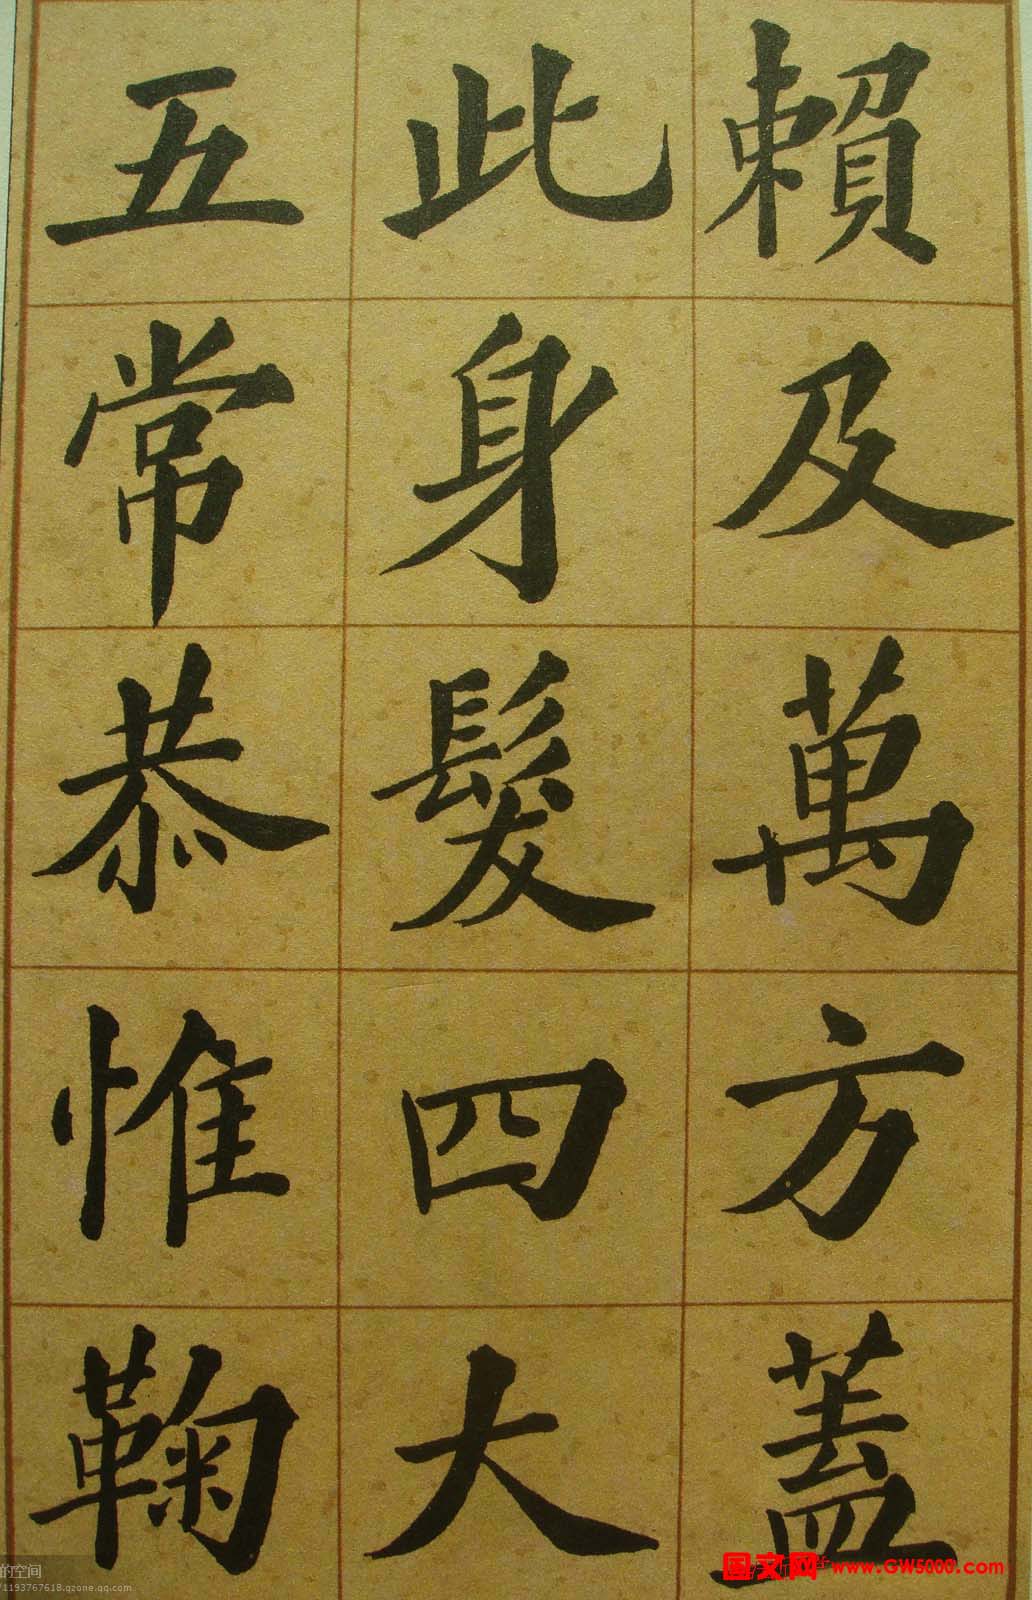 賴及萬方蓋
此身髮四大
五常恭惟鞠
的空间
1193767618.qzone.qq.com
图文网 www.GW5000.com